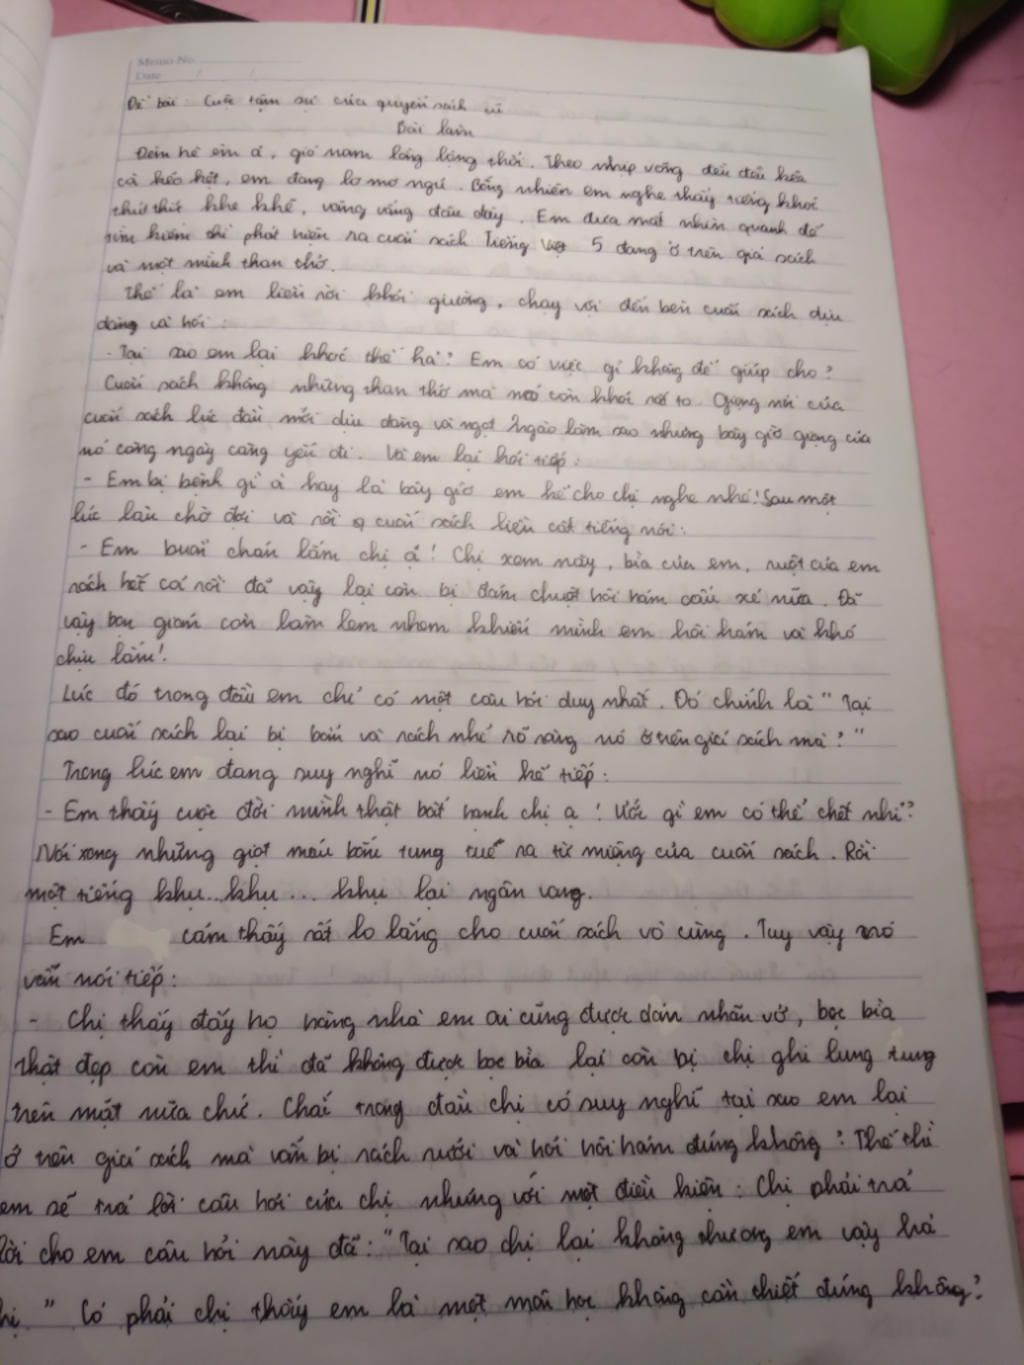 Memo No
Date / /
Đề bài: Cuộc tâm sự của quyển sách cũ
Bài làm
Đêm hè êm ả, gió nam lồng lộng thổi. Theo nhịp võng đều đều kẽo
cà kẽo kẹt, em đang lơ mơ ngủ. Bỗng nhiên em nghe thấy tiếng khóc
thút thít khe khẽ, văng vẳng đâu đây. Em đưa mắt nhìn quanh để
tìm kiếm thì phát hiện ra cuốn sách Tiếng Việt 5 đang ở trên giá sách
và một mình than thở.
Thế là em liền rời khỏi giường, chạy vội đến bên cuốn sách dịu
dàng và hỏi:
- Tại sao em lại khóc thế hả? Em có việc gì không để giúp cho?
Cuốn sách không những than thở mà nó còn khóc rất to. Giọng nói của
cuốn sách lúc đầu mới dịu dàng và ngọt ngào làm sao nhưng bây giờ giọng của
nó càng ngày càng yếu đi. Và em lại hỏi tiếp:
- Em bị bệnh gì à hay là bây giờ em kể cho chị nghe nhé! Sau một
lúc lâu chờ đợi và rồi cuốn sách liền cất tiếng nói:
- Em buồn chán lắm chị ạ! Chị xem này, bìa của em, ruột của em
rách hết cả rồi đã vậy lại còn bị đám chuột hôi hám cấu xé nữa. Đã
vậy bọn gián còn làm lem nhem khiến mình em hôi hám và khó
chịu lắm!.
Lúc đó trong đầu em chỉ có một câu hỏi duy nhất. Đó chính là "Tại
sao cuốn sách lại bị bẩn và rách nhỉ rõ ràng nó ở trên giá sách mà?"
Trong lúc em đang suy nghĩ nó liền kể tiếp:
- Em thấy cuộc đời mình thật bất hạnh chị ạ! Ước gì em có thể chết nhỉ?
Nói xong những giọt máu bắn tung tué ra từ miệng của cuốn sách. Rồi
một tiếng khụ...khụ... khụ lại ngân vang.
Em cảm thấy rất lo lắng cho cuốn sách vô cùng. Tuy vậy nó
vẫn nói tiếp:
- Chị thấy đấy họ hàng nhà em ai cũng được dán nhãn vở, bọc bìa
thật đẹp còn em thì đã không được bọc bìa lại còn bị chị ghi lung tung
trên mặt nữa chứ. Chắc trong đầu chị có suy nghĩ tại sao em lại
ở trên giá sách mà vẫn bị rách rưới và hôi hôi hám đúng không? Thế thì
em sẽ trả lời câu hỏi của chị nhưng với một điều kiện: Chị phải trả
lời cho em câu hỏi này đã: "Tại sao chị lại không thương em vậy hả
chị." Có phải chị thấy em là một môn học không cần thiết đúng không?